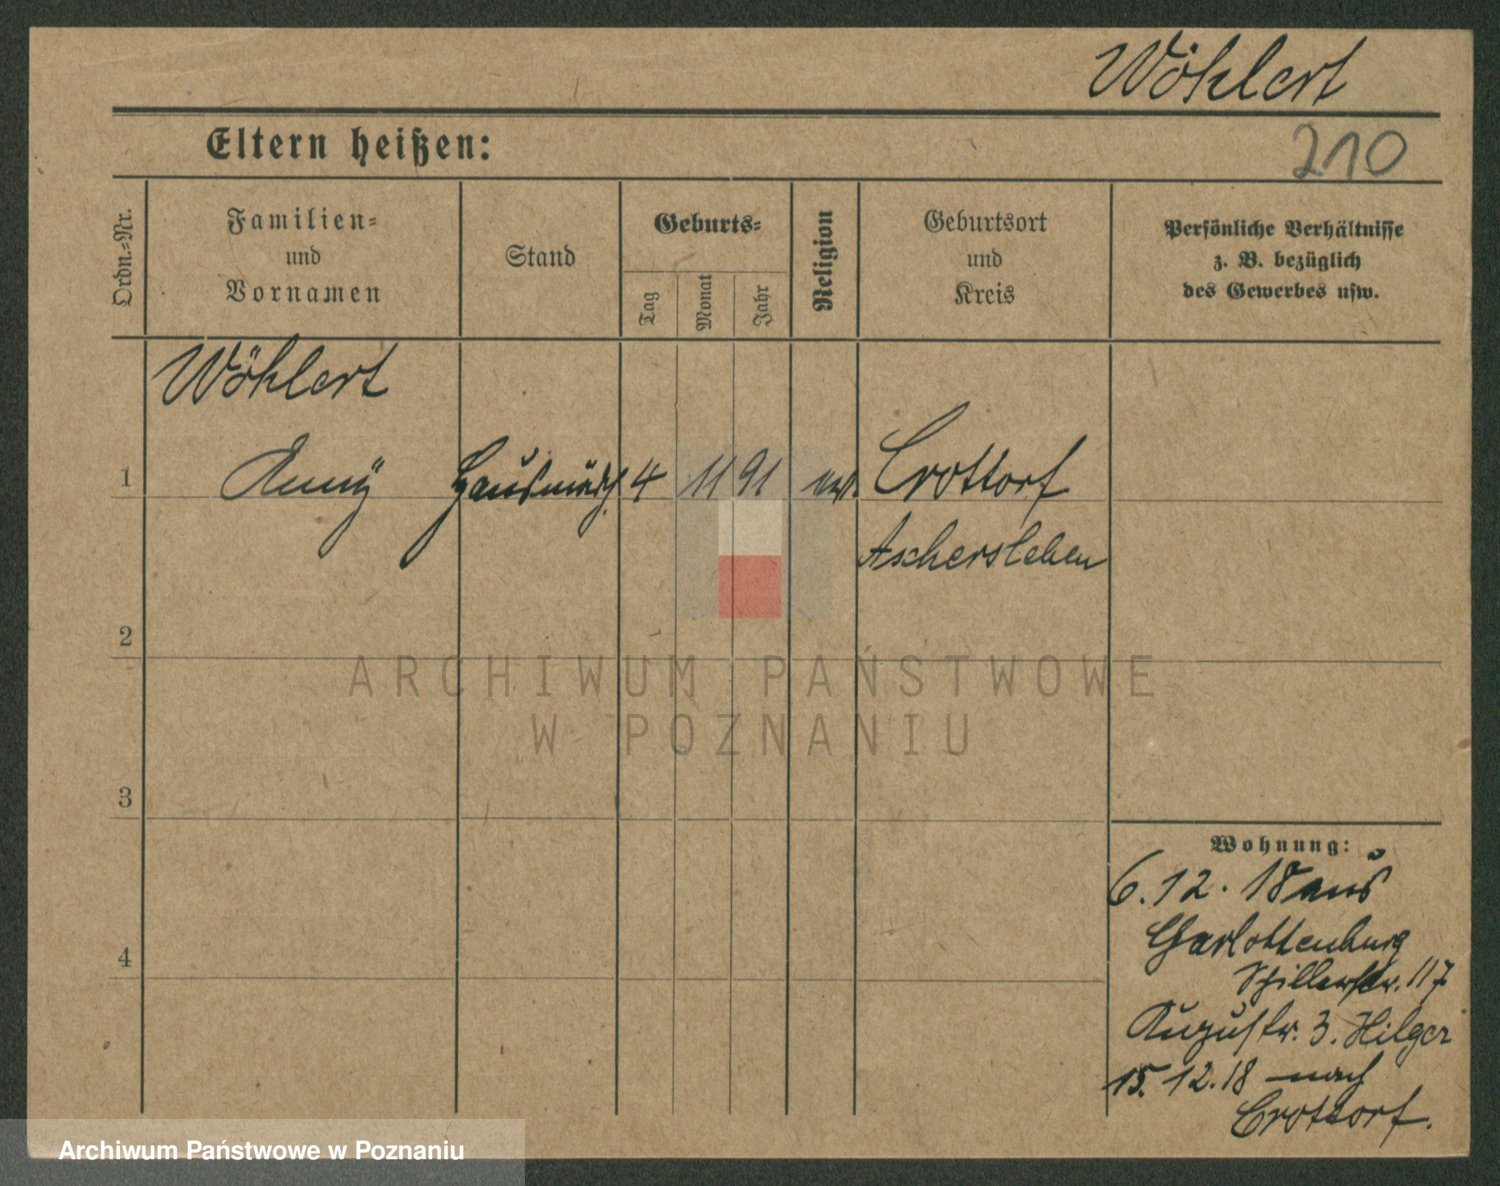 Wöhlert
Eltern heißen:
210
Ordn.=Nr.
Familien=
und
Vornamen
Stand
Geburts=
Tag
Monat
Jahr
Religion
Geburtsort
und
Kreis
Persönliche Verhältnisse
z. B. bezüglich
des Gewerbes usw.
Wöhlert
1 Anny Hausmädch. 4 11 91 ev. Crottorf
Aschersleben
2
3
4
Wohnung:
6.12.18 aus
Charlottenburg
Schillerstr. 117
Augustr. 3. Hilger
15.12.18 nach
Crottorf.
ARCHIWUM PAŃSTWOWE
W POZNANIU
Archiwum Państwowe w Poznaniu